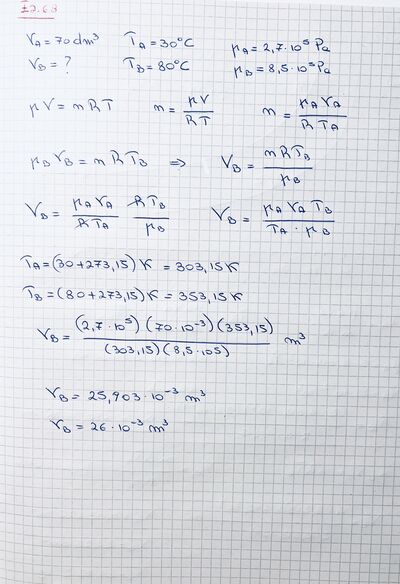 I2.63
V_A = 70 dm³ T_A = 30°C p_A = 2,7·10⁵ Pa
V_B = ? T_B = 80°C p_B = 8,5·10⁵ Pa
pV = nRT n = pV/RT n = p_A V_A/R T_A
p_B V_B = nRT_B ⟹ V_B = nRT_B/p_B
V_B = p_A V_A/R T_A RT_B/p_B V_B = p_A V_A T_B/T_A · p_B
T_A = (30+273,15)K = 303,15K
T_B = (80+273,15)K = 353,15K
V_B = (2,7·10⁵)(70·10⁻³)(353,15)/(303,15)(8,5·105) m³
V_B = 25,903·10⁻³ m³
V_B = 26·10⁻³ m³